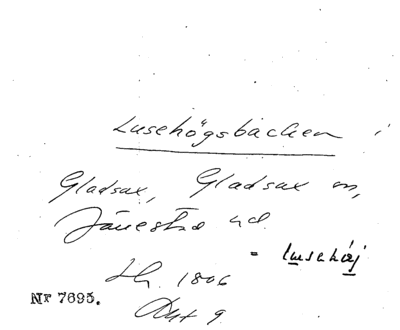 Lusehögsbacken i
Gladsax, Gladsax sn,
Järrestad hd.
= lusehöj
Lh. 1806
Akt 9
Nr 7695.